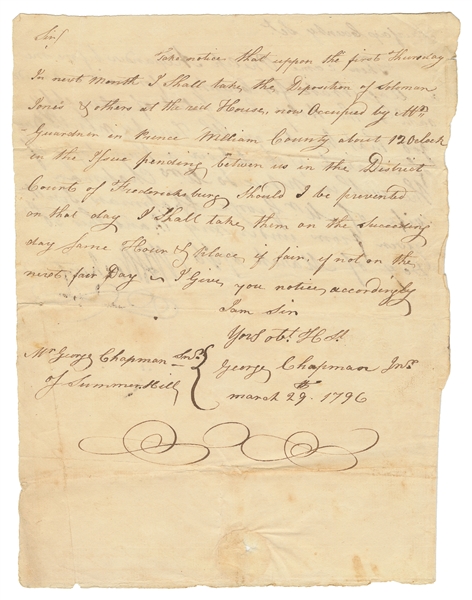 Sir/
Take notice that upon the first Thursday
In next month I Shall take the Deposition of Soloman
Jones & others at the red House, now Occupied by Mrs
Guardner in Prince William County about 12 Oclock
in the Issue pending between us in the District
Courts of Fredericksburg Should I be prevented
on that day I Shall take them on the succeeding
day Same Hour & Place, if fair, if not on the
next fair Day I Give, you notice accordingly
I am Sir
Yors obt. Hs.
Mr. George Chapman Snr.
George Chapman Jnr.
of Summer Hill
march 29th 1796